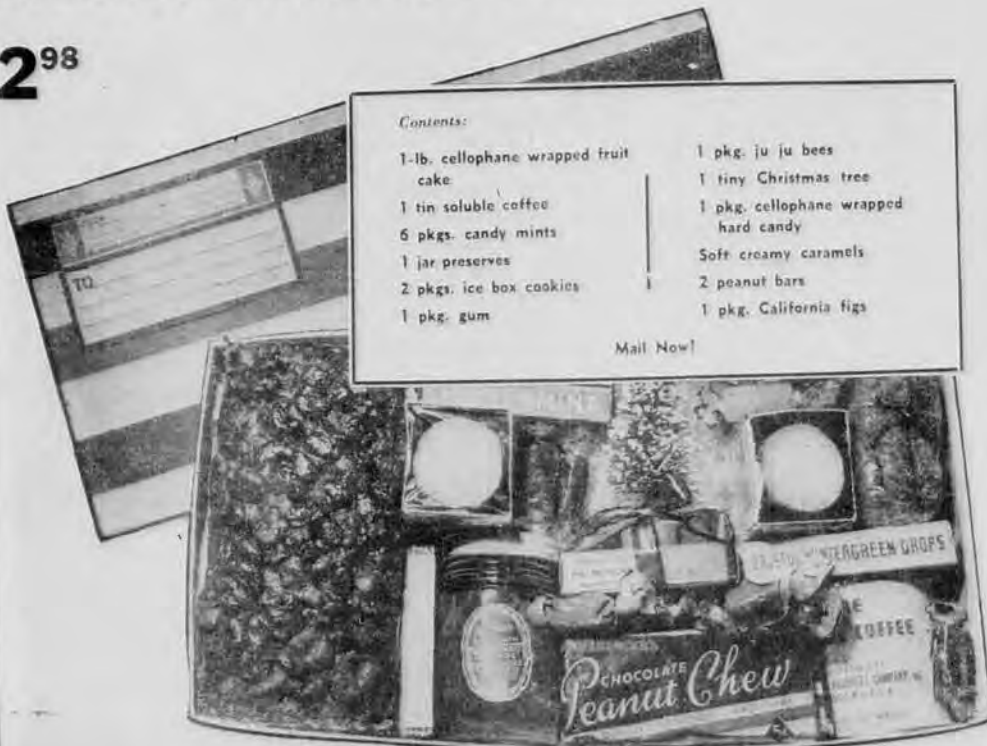 2⁹⁸
Contents:
1-lb. cellophane wrapped fruit
cake
1 tin soluble coffee
6 pkgs. candy mints
1 jar preserves
2 pkgs. ice box cookies
1 pkg. gum
1 pkg. ju ju bees
1 tiny Christmas tree
1 pkg. cellophane wrapped
hard candy
Soft creamy caramels
2 peanut bars
1 pkg. California figs
Mail Now!
TO
MINT
WINTERGREEN DROPS
COFFEE
CHOCOLATE
Peanut Chew